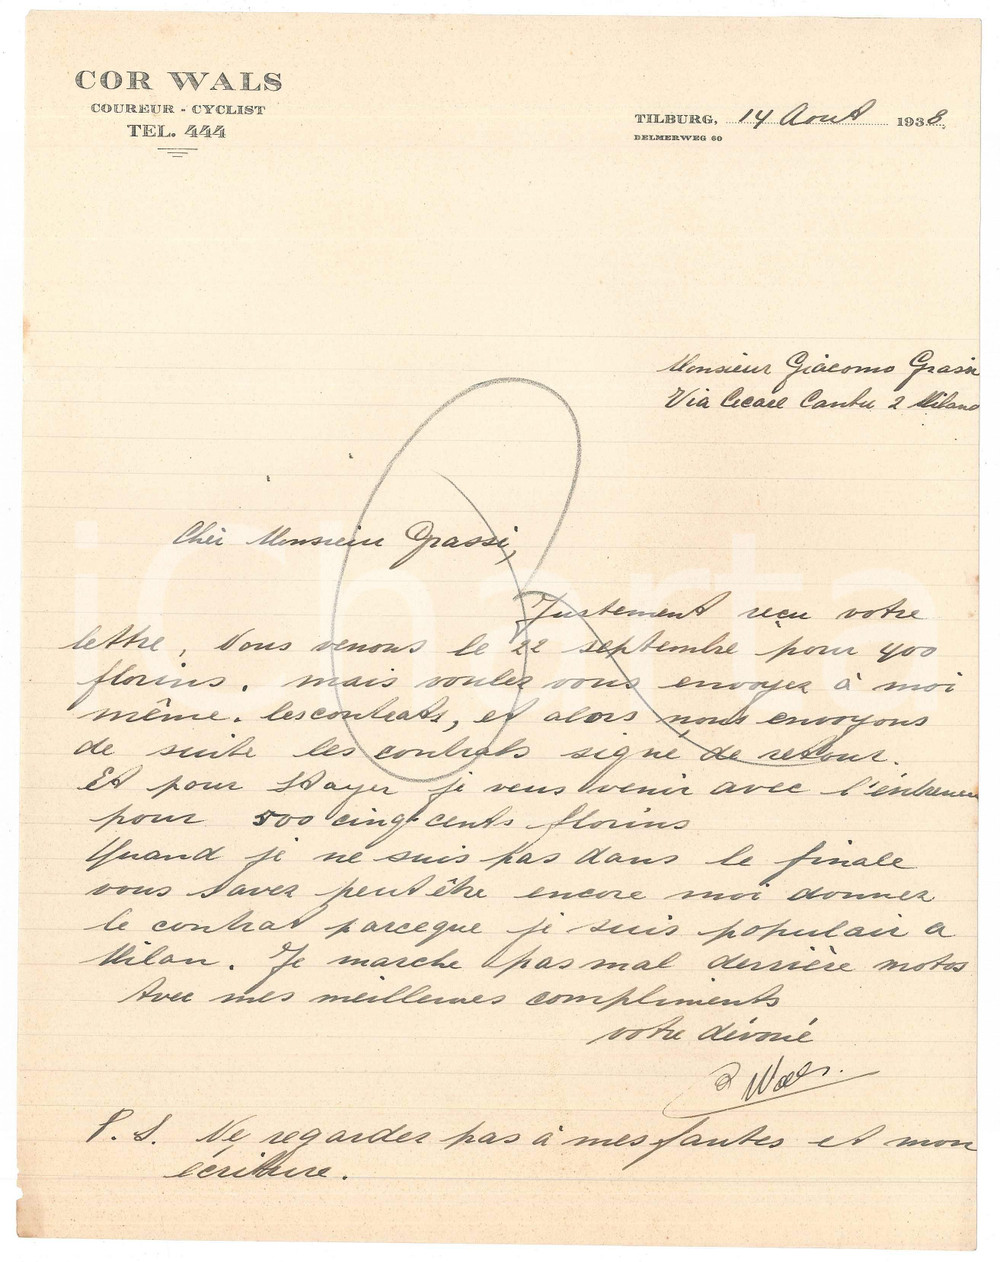 COR WALS
COUREUR - CYCLIST
TEL. 444
TILBURG, 14 Aout 1938,
DELMERWEG 60
Monsieur Giacomo Grassi
Via Cecare Cantu 2 Milano
Cher Monsieur Grassi,
Justement reçu votre
lettre, Nous venons le 22 septembre pour 400
florins. mais voulez vous envoyez à moi
même. les contrats, et alors nous envoyons
de suite les contrats signé de retour.
Et pour Stayer je veus venir avec l'éntreneur
pour 500 cinq cents florins
Quand je ne suis pas dans le finale
vous savez peut être encore moi donner
le contrat parceque je suis populair a
Milan. Je marche pas mal derrière motos
Avec mes meilleures compliments
votre dévoué
C Wals.
P. S. Ne regardez pas à mes fautes et mon
écriture.
iCharta